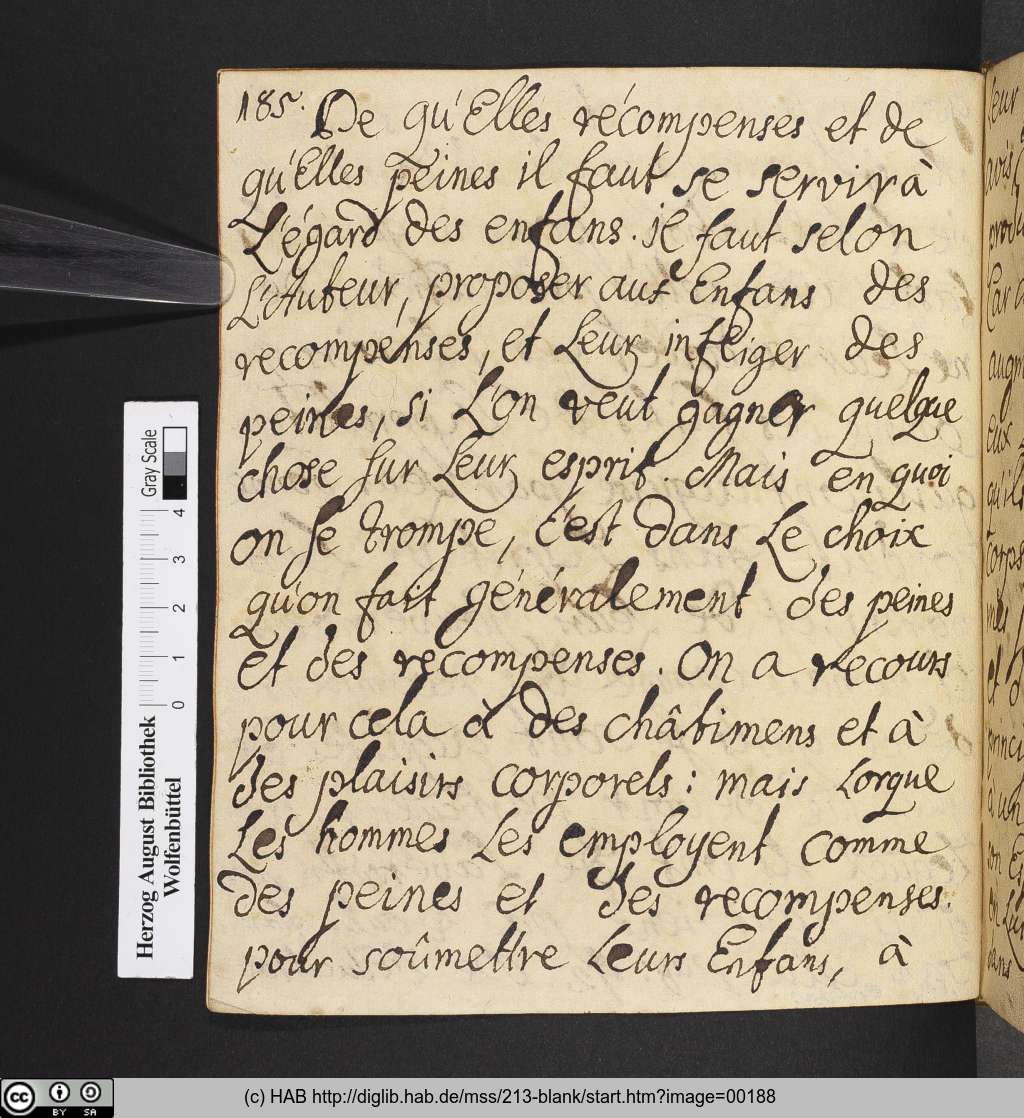 185. De qu'Elles récompenses et de
qu'Elles peines il faut se servir à
L'égard des enfans. il faut selon
L'Auteur, proposer aux Enfans des
recompenses, et Leur infliger des
peines, si L'on veut gagner quelque
chose sur Leur esprit. Mais en quoi
on se trompe, c'est dans Le choix
qu'on fait généralement des peines
et des recompenses. On a recours
pour cela à des châtimens et à
des plaisirs corporels: mais Lorque
Les hommes Les employent comme
des peines et des recompenses
pour soûmettre Leurs Enfans, à
Gray Scale
0 1 2 3 4
Herzog August Bibliothek
Wolfenbüttel
cc BY SA
(c) HAB http://diglib.hab.de/mss/213-blank/start.htm?image=00188